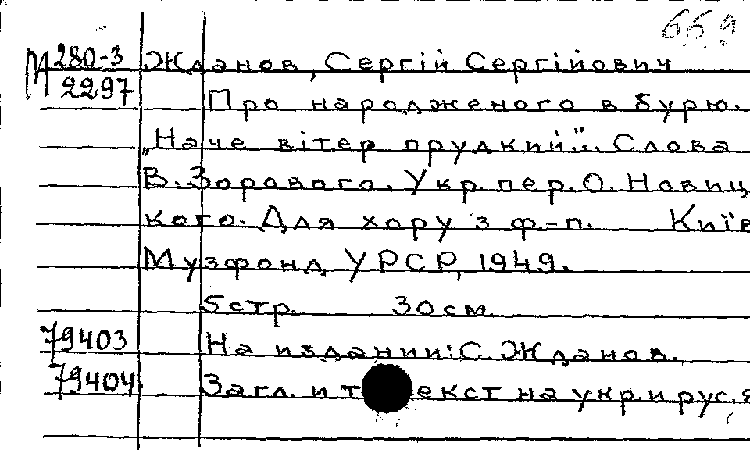 669
М 280-3 Жданов, Сергій Сергійович
2297 Про народженого в бурю.
„Наче вітер прудкий". Слова
В. Зорового. Укр. пер. О. Новиц
кого. Для хору з ф.-п. Київ
Музфонд УРСР, 1949.
5 стр. 30 см.
79403 На издании: С. Жданов.
79404 Загл. и текст на укр. и рус. я